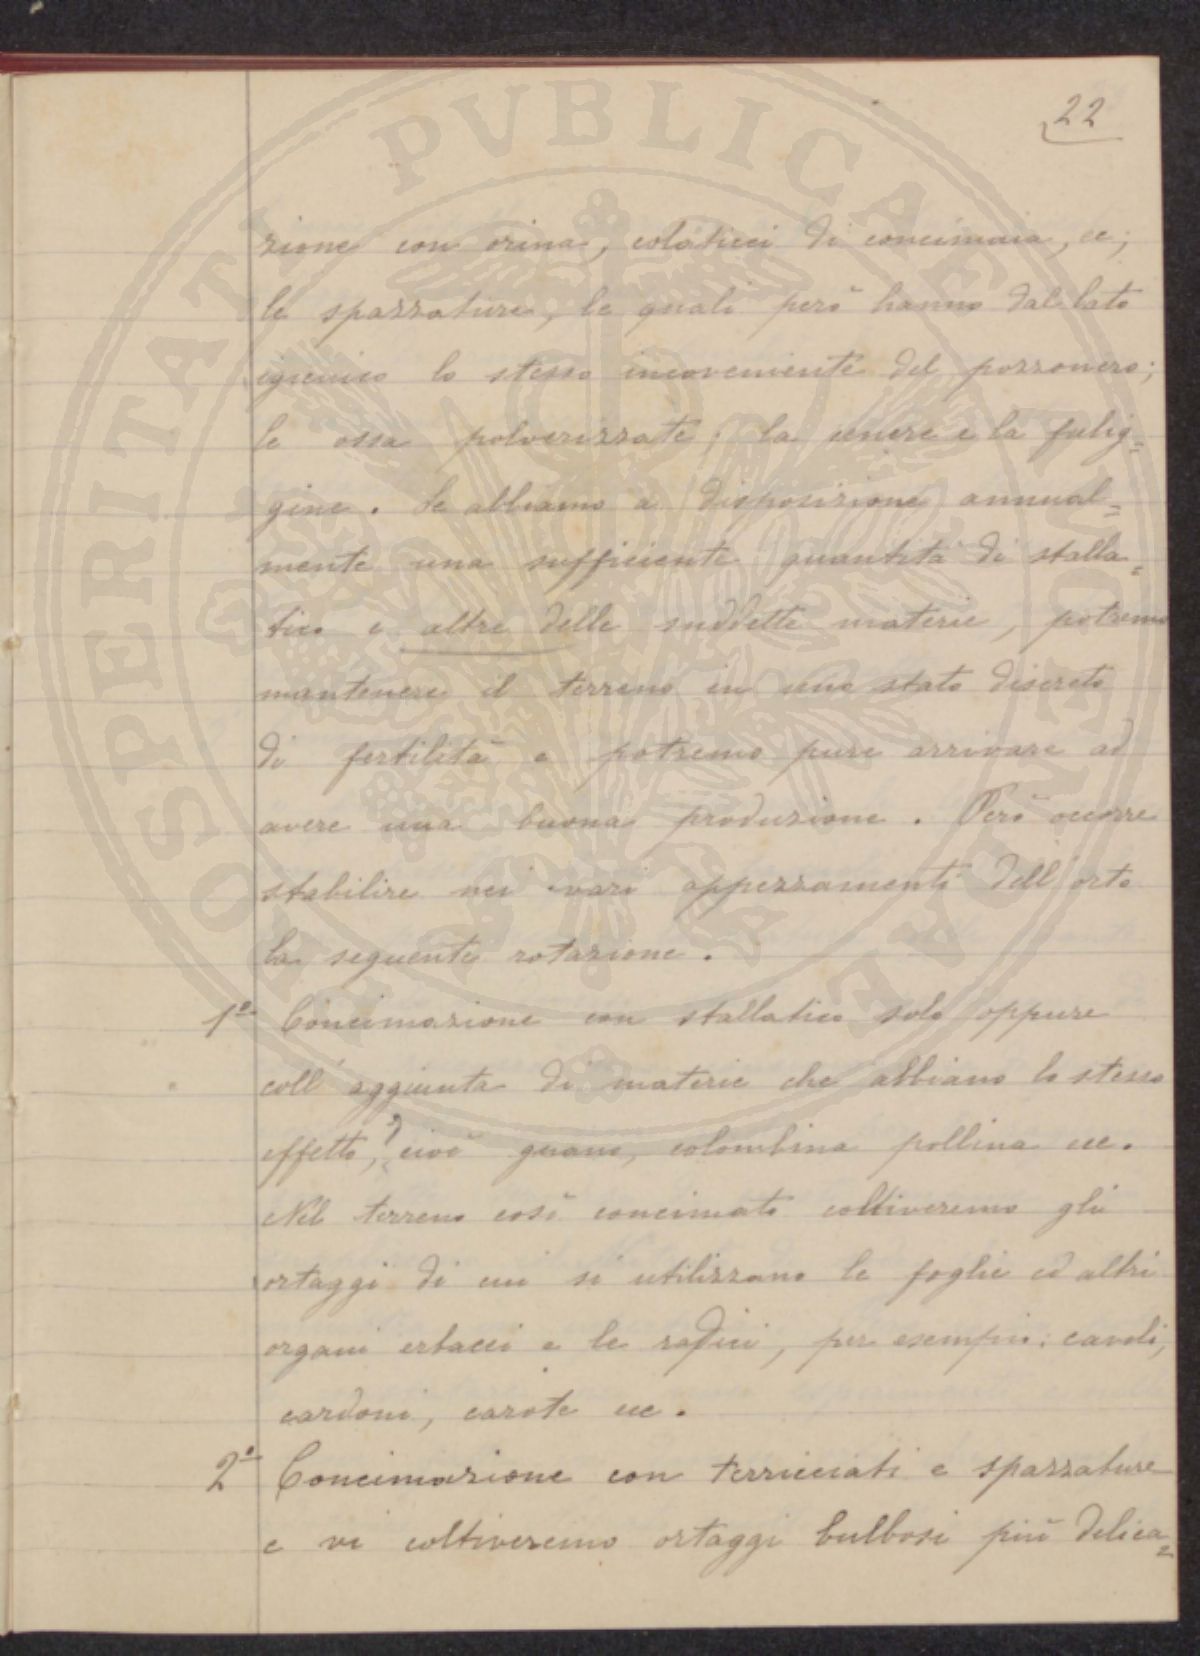 22
zione con orina, colaticci di concimaia, ec;
le spazzature, le quali però hanno dal lato
igienico lo stesso inconveniente del pozzonero;
le ossa polverizzate; la cenere e la fulig=
gine. Se abbiamo a disposizione annual=
mente una sufficiente quantità di stalla=
tico e altre delle suddette materie, potremo
mantenere il terreno in uno stato discreto
di fertilità e potremo pure arrivare ad
avere una buona produzione. Però occorre
stabilire nei vari appezzamenti dell'orto
la seguente rotazione.
1° Concimazione con stallatico solo oppure
coll'aggiunta di materie che abbiano lo stesso
effetto, ? cioè guano, colombina pollina ecc.
Nel terreno così concimato coltiveremo gli
ortaggi di cui si utilizzano le foglie ed altri
organi erbacei e le radici, per esempio: cavoli,
cardoni, carote ecc.
2° Concimazione con terricciati e spazzature
e vi coltiveremo ortaggi bulbosi più delica=
PROSPERITATI PVBLICAE AVGENDAE